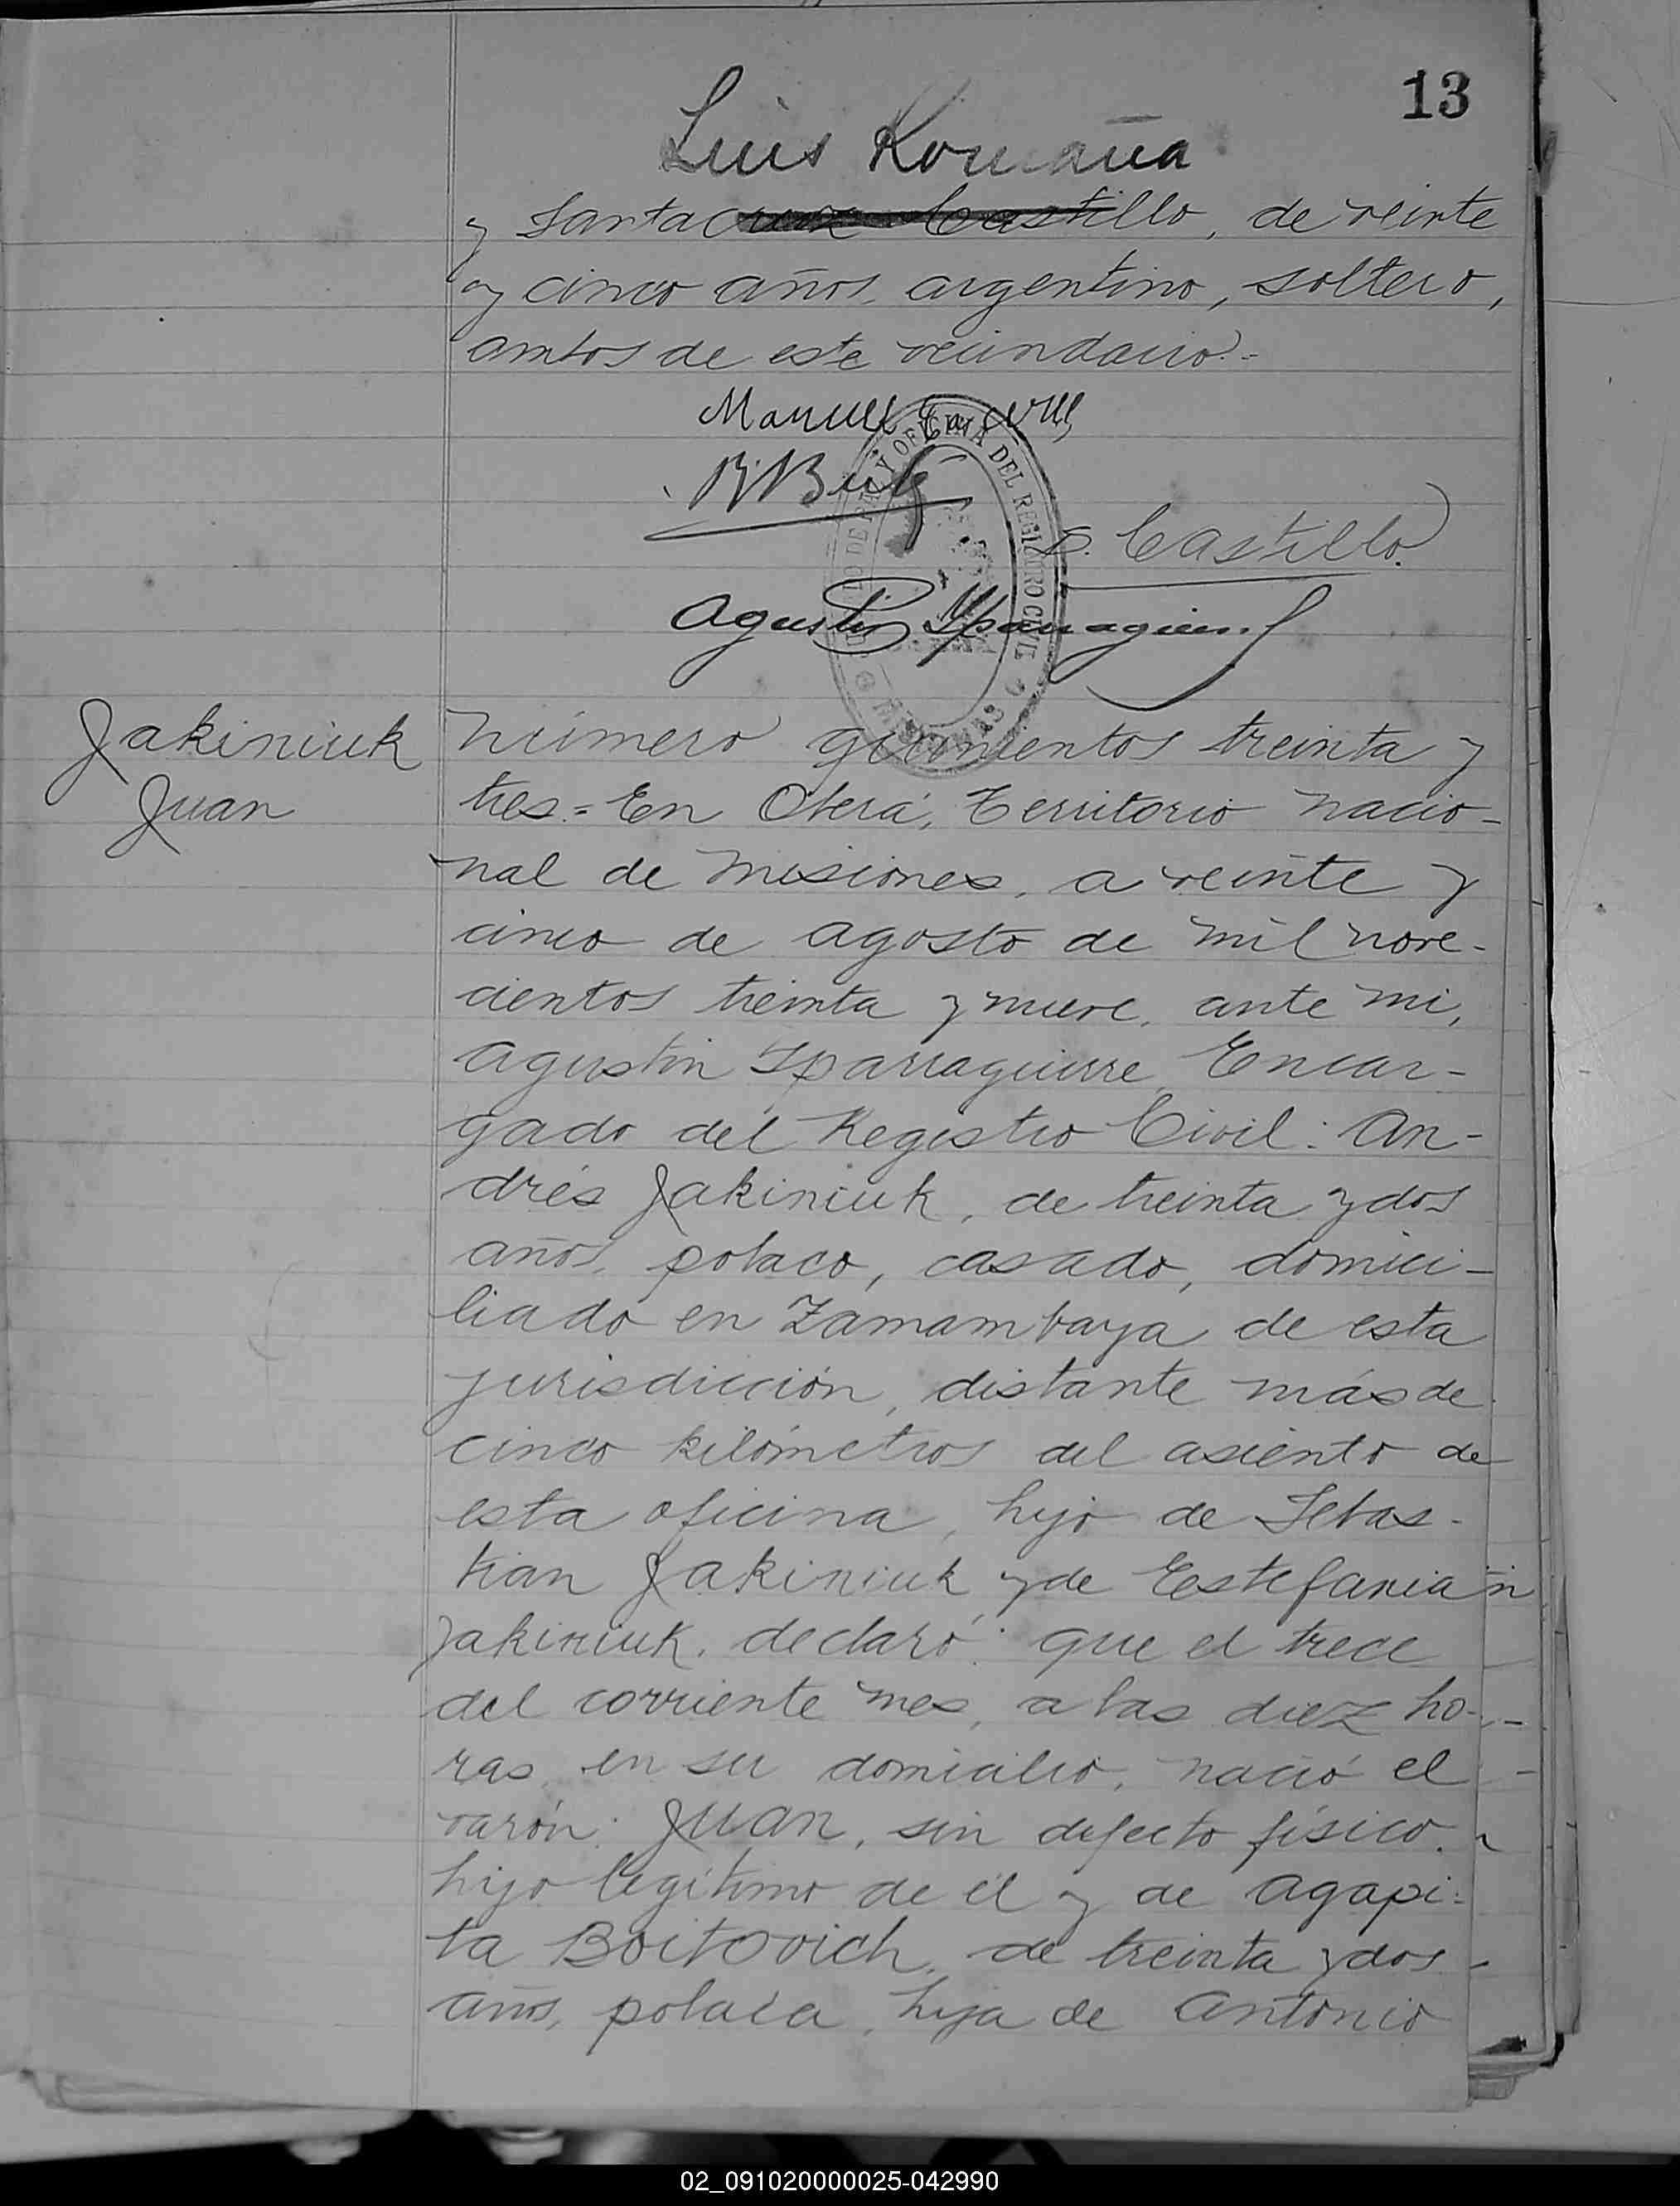 13
Luis Romaña
y Santacruz Castillo, de veinte
y cinco años, argentino, soltero,
ambos de este vecindario.-
Manuel
S. Castillo
Agustin Yparraguirre
JUZGADO DE PAZ Y OFICINA DEL REGISTRO CIVIL
MISIONES
Jakiniuk
Juan
Número quinientos treinta y
tres.= En Oberá, Territorio Nacio-
nal de Misiones, a veinte y
cinco de Agosto de mil nove-
cientos treinta y nueve, ante mi,
Agustin Yparraguirre, Encar-
gado del Registro Civil: An-
drés Jakiniuk, de treinta y dos
años, polaco, casado, domici-
liado en Zamambaya de esta
jurisdicción, distante más de
cinco kilómetros del asiento de
esta oficina, hijo de Sebas-
tian Jakiniuk y de Estefania
Jakiniuk, declaró: que el trece
del corriente mes, a las diez ho-
ras, en su domicilio, nació el
varón: Juan, sin defecto físico,
hijo legítimo de él y de Agapi-
ta Boitovich, de treinta y dos
años, polaca, hija de Antonio
02_091020000025-042990